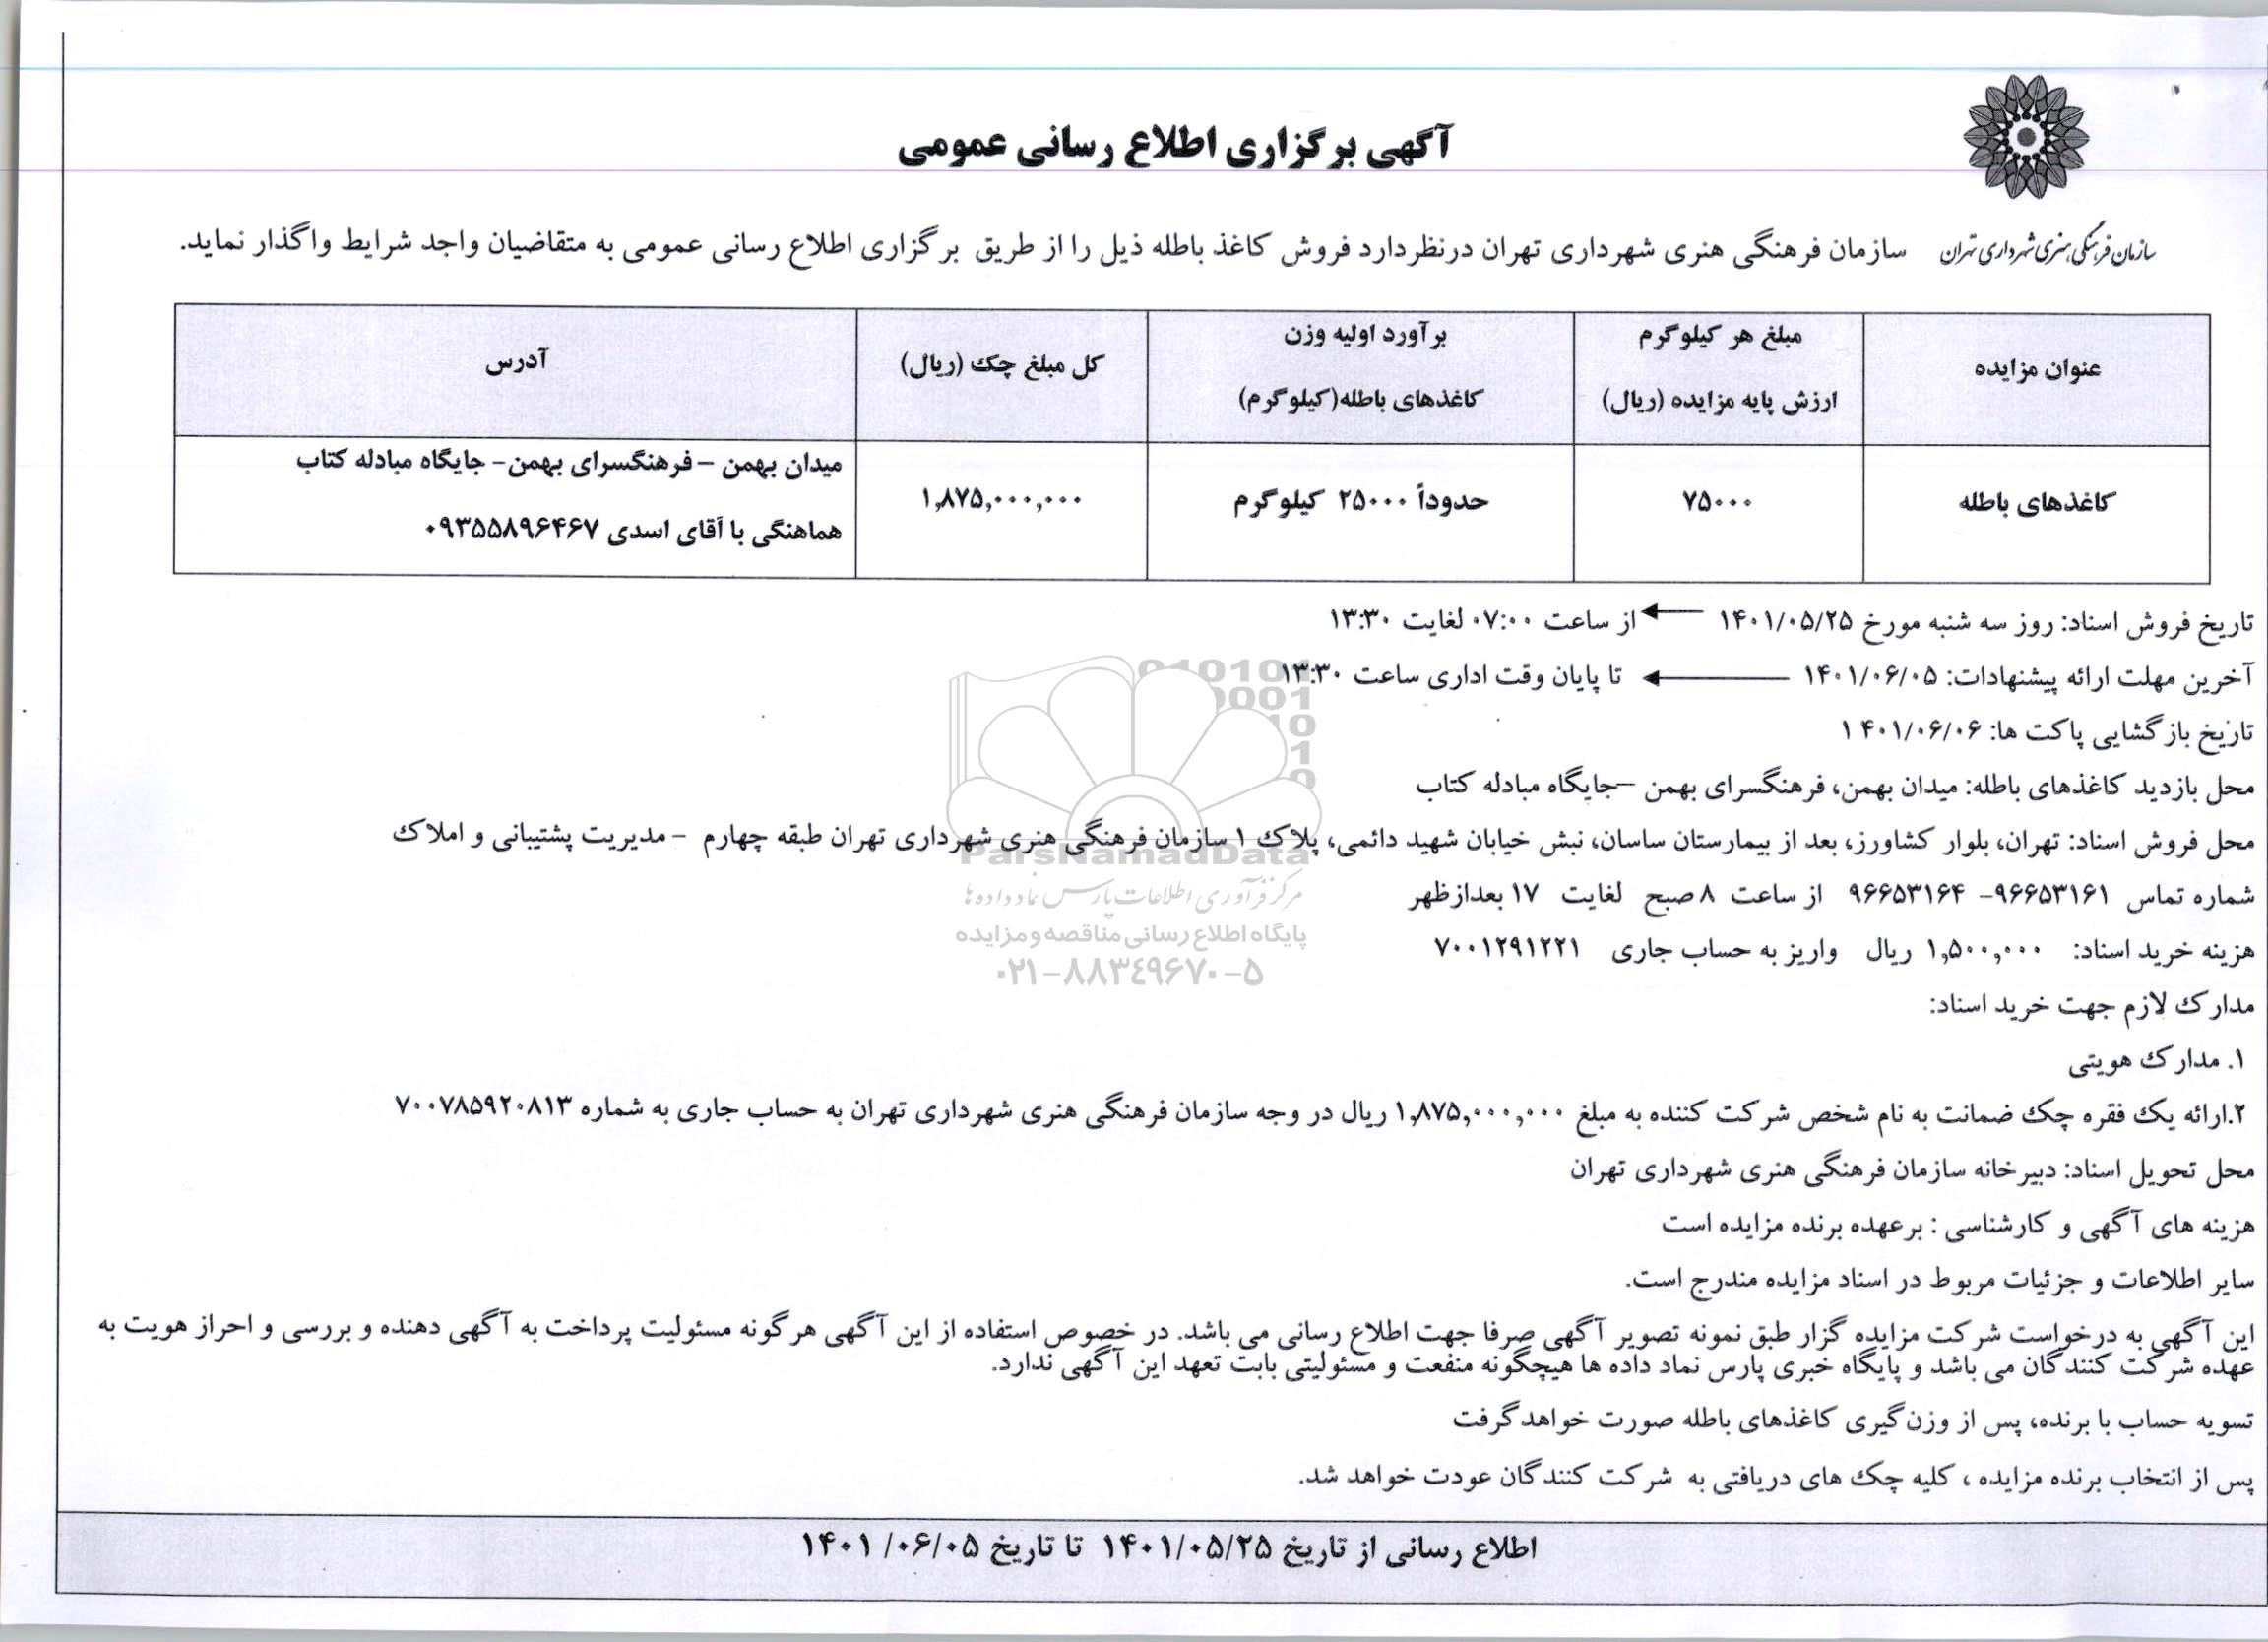 آگهی برگزاری اطلاع رسانی عمومی
سازمان فرهنگی هنری شهرداری تهران
سازمان فرهنگی هنری شهرداری تهران درنظردارد فروش کاغذ باطله ذیل را از طریق برگزاری اطلاع رسانی عمومی به متقاضیان واجد شرایط واگذار نماید.
عنوان مزایده
مبلغ هر کیلوگرم
ارزش پایه مزایده (ریال)
برآورد اولیه وزن
کاغذهای باطله(کیلوگرم)
کل مبلغ چک (ریال)
آدرس
کاغذهای باطله
۷۵۰۰۰
حدوداً ۲۵۰۰۰ کیلوگرم
۱,۸۷۵,۰۰۰,۰۰۰
میدان بهمن – فرهنگسرای بهمن- جایگاه مبادله کتاب
هماهنگی با آقای اسدی ۰۹۳۵۵۸۹۶۴۶۷
تاریخ فروش اسناد: روز سه شنبه مورخ ۱۴۰۱/۰۵/۲۵ ← از ساعت ۰۷:۰۰ لغایت ۱۳:۳۰
آخرین مهلت ارائه پیشنهادات: ۱۴۰۱/۰۶/۰۵ ← تا پایان وقت اداری ساعت ۱۳:۳۰
تاریخ بازگشایی پاکت ها: ۱۴۰۱/۰۶/۰۶
محل بازدید کاغذهای باطله: میدان بهمن، فرهنگسرای بهمن –جایگاه مبادله کتاب
محل فروش اسناد: تهران، بلوار کشاورز، بعد از بیمارستان ساسان، نبش خیابان شهید دائمی، پلاک ۱ سازمان فرهنگی هنری شهرداری تهران طبقه چهارم – مدیریت پشتیبانی و املاک
شماره تماس ۹۶۶۵۳۱۶۱- ۹۶۶۵۳۱۶۴ از ساعت ۸ صبح لغایت ۱۷ بعدازظهر
هزینه خرید اسناد: ۱,۵۰۰,۰۰۰ ریال واریز به حساب جاری ۷۰۰۱۲۹۱۲۲۱
مدارک لازم جهت خرید اسناد:
۱. مدارک هویتی
۲.ارائه یک فقره چک ضمانت به نام شخص شرکت کننده به مبلغ ۱,۸۷۵,۰۰۰,۰۰۰ ریال در وجه سازمان فرهنگی هنری شهرداری تهران به حساب جاری به شماره ۷۰۰۷۸۵۹۲۰۸۱۳
محل تحویل اسناد: دبیرخانه سازمان فرهنگی هنری شهرداری تهران
هزینه های آگهی و کارشناسی : برعهده برنده مزایده است
سایر اطلاعات و جزئیات مربوط در اسناد مزایده مندرج است.
این آگهی به درخواست شرکت مزایده گزار طبق نمونه تصویر آگهی صرفا جهت اطلاع رسانی می باشد. در خصوص استفاده از این آگهی هرگونه مسئولیت پرداخت به آگهی دهنده و بررسی و احراز هویت به
عهده شرکت کنندگان می باشد و پایگاه خبری پارس نماد داده ها هیچگونه منفعت و مسئولیتی بابت تعهد این آگهی ندارد.
تسویه حساب با برنده، پس از وزن‌گیری کاغذهای باطله صورت خواهدگرفت
پس از انتخاب برنده مزایده ، کلیه چک های دریافتی به شرکت کنندگان عودت خواهد شد.
اطلاع رسانی از تاریخ ۱۴۰۱/۰۵/۲۵ تا تاریخ ۱۴۰۱ /۰۶/۰۵
ParsNamadData
مرکز فرآوری اطلاعات پارس نماد داده ها
پایگاه اطلاع رسانی مناقصه و مزایده
۰۲۱-۸۸۳۴۹۶۷۰-۵